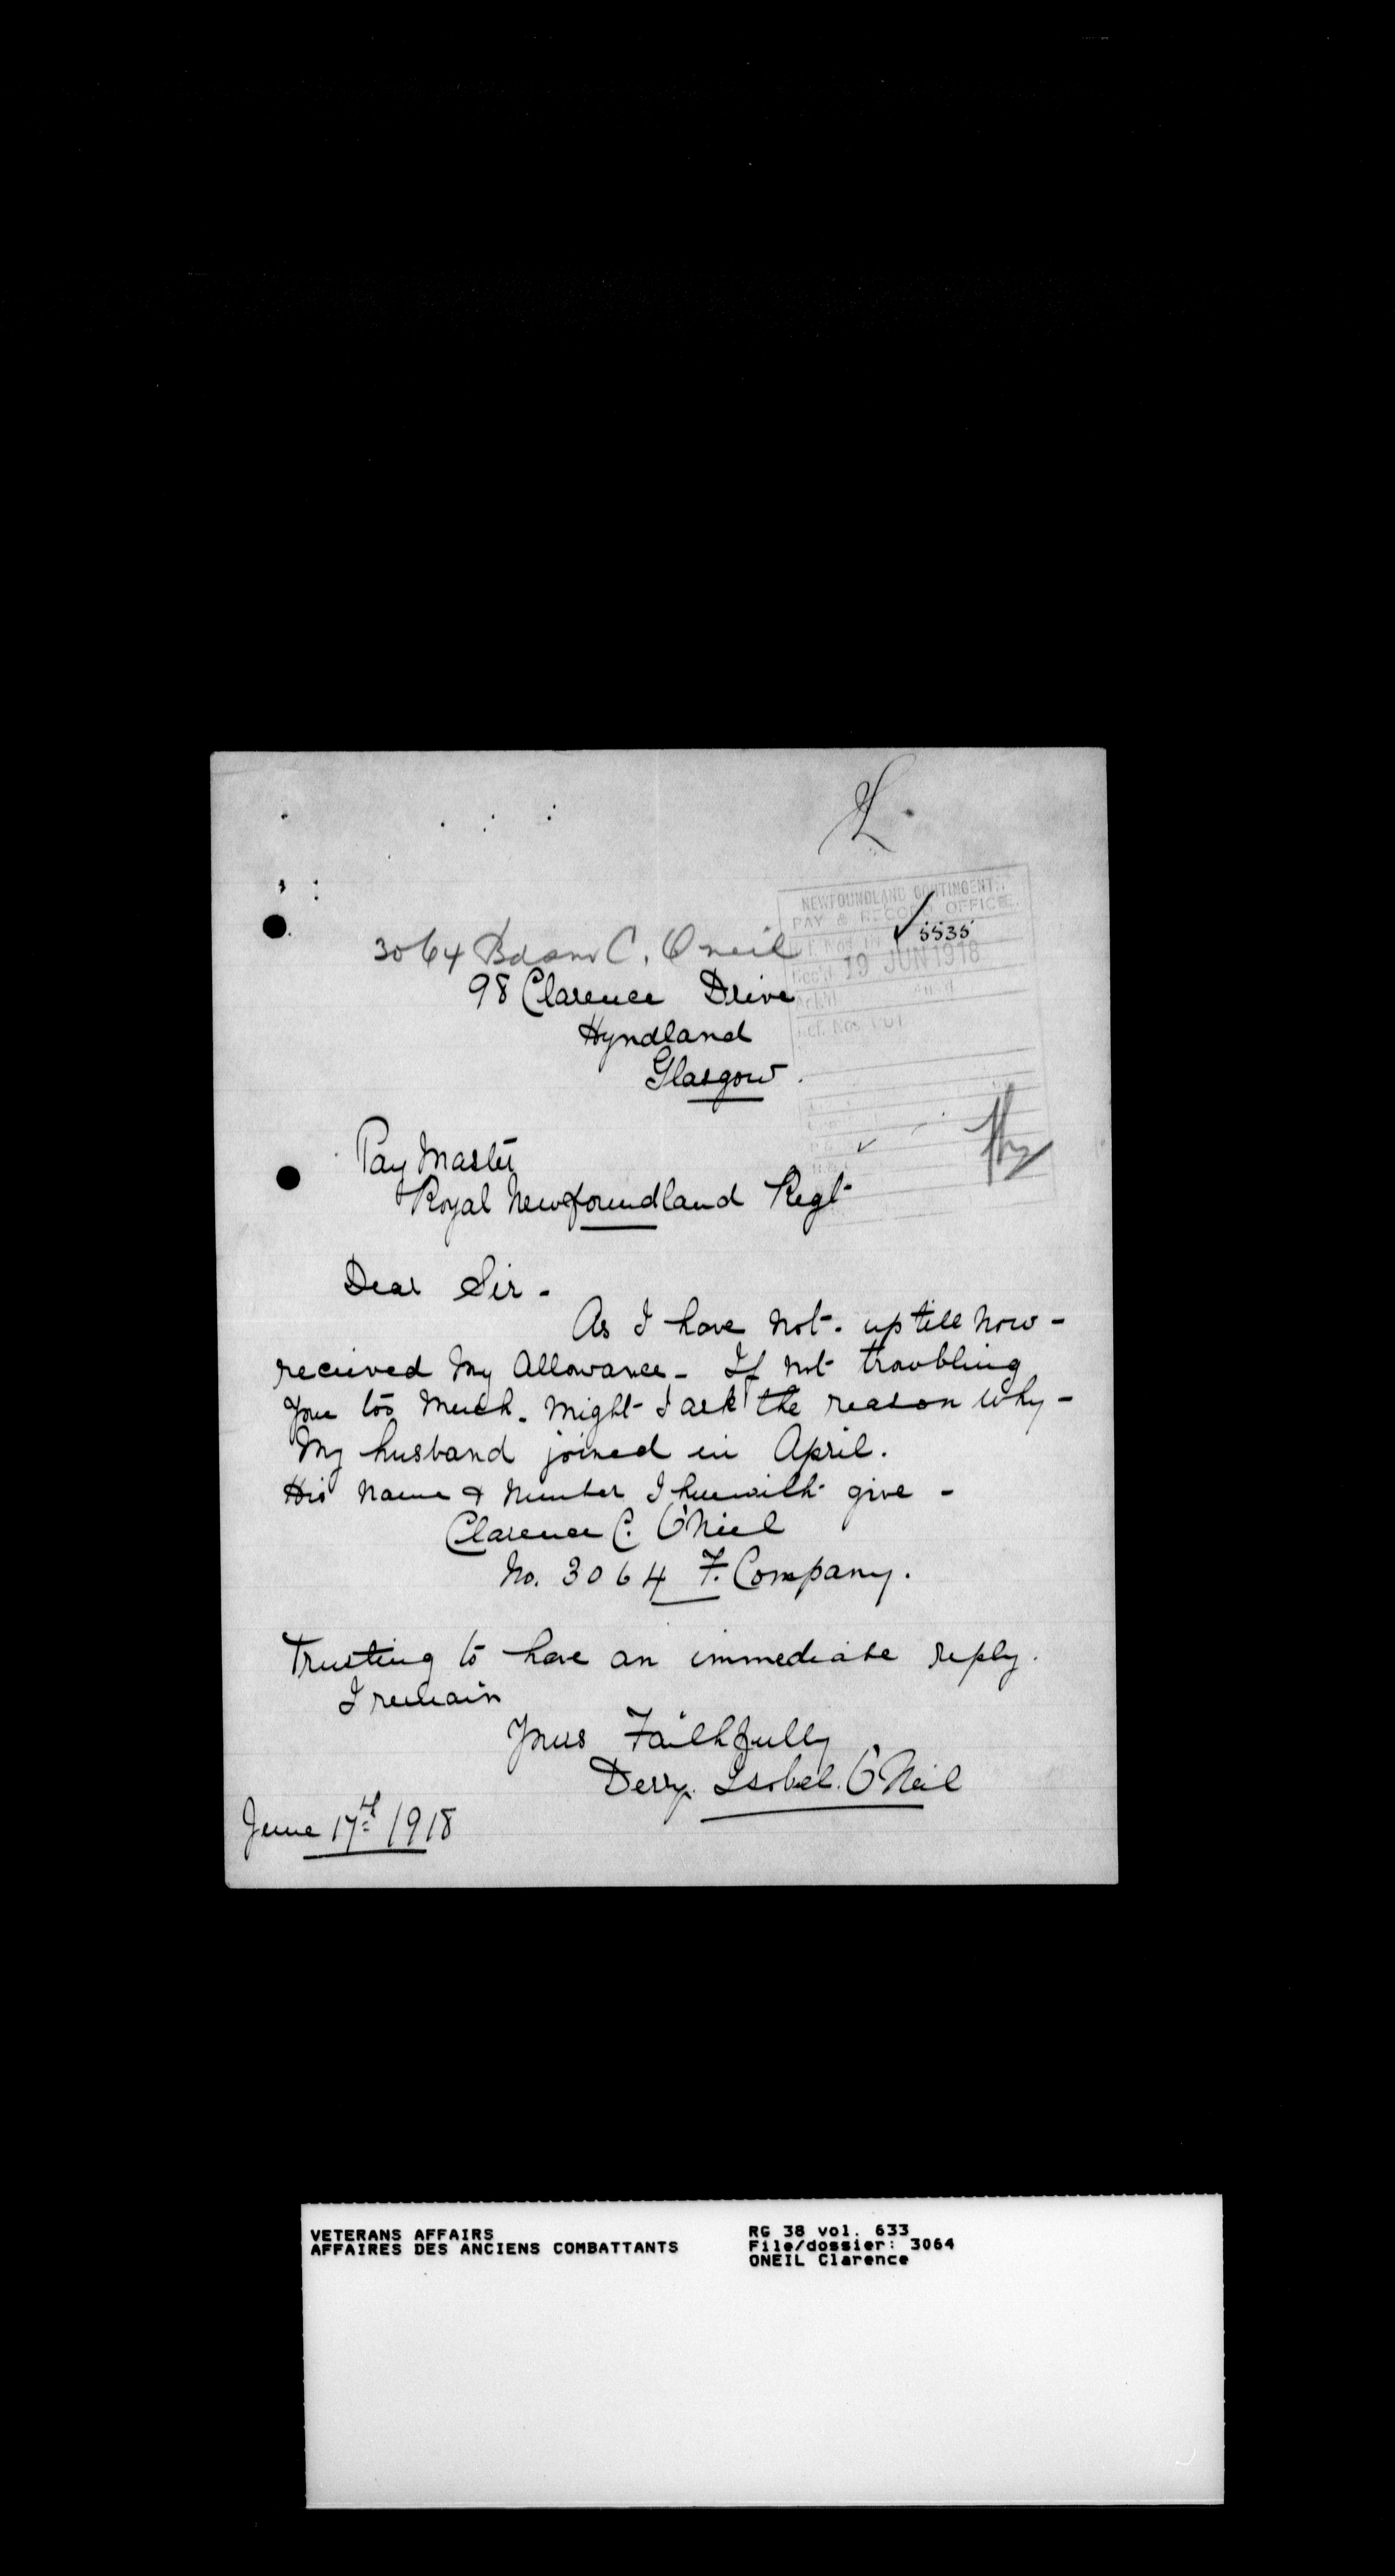 L
NEWFOUNDLAND CONTINGENT
PAY & RECORD OFFICE
5535
Rec'd 19 JUN 1918
Ref. Nos. OUT
3064 Bdsm C. Oneil
98 Clarence Drive
Hyndland
Glasgow.
Pay Master
Royal Newfoundland Regt
Dear Sir -
As I have not. up till now -
received my Allowance - If not troubling
you too much. might I ask the reason why -
My husband joined in April.
His name & number I herewith give -
Clarence C. O'Neil
No. 3064 F. Company.
Trusting to have an immediate reply.
I remain
Yours Faithfully
Derry. Isobel. O'Neil
June 17th 1918
VETERANS AFFAIRS
AFFAIRES DES ANCIENS COMBATTANTS
RG 38 vol. 633
File/dossier: 3064
ONEIL Clarence